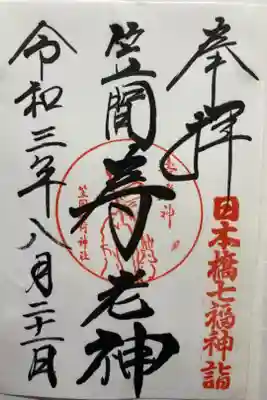 奉拝
日本橋七福神詣
笠間寿老神
笠間稲荷神社
令和三年八月二十一日